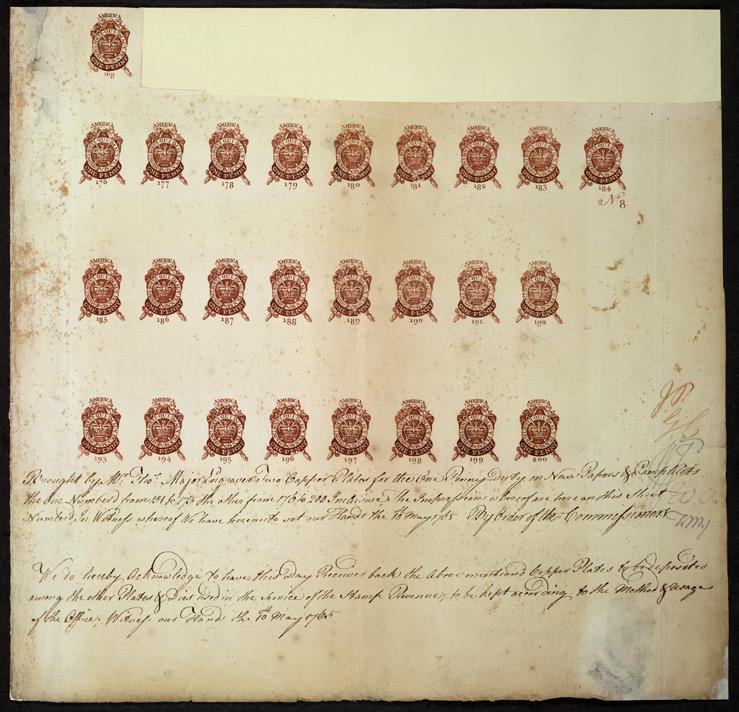 AMERICA
ONE·PENNY
168
AMERICA AMERICA AMERICA AMERICA AMERICA AMERICA AMERICA AMERICA AMERICA
ONE·PENNY ONE·PENNY ONE·PENNY ONE·PENNY ONE·PENNY ONE·PENNY ONE·PENNY ONE·PENNY ONE·PENNY
176 177 178 179 180 181 182 183 184
No. 8
AMERICA AMERICA AMERICA AMERICA AMERICA AMERICA AMERICA AMERICA
ONE·PENNY ONE·PENNY ONE·PENNY ONE·PENNY ONE·PENNY ONE·PENNY ONE·PENNY ONE·PENNY
185 186 187 188 189 190 191 192
AMERICA AMERICA AMERICA AMERICA AMERICA AMERICA AMERICA AMERICA
ONE·PENNY ONE·PENNY ONE·PENNY ONE·PENNY ONE·PENNY ONE·PENNY ONE·PENNY ONE·PENNY
193 194 195 196 197 198 199 200
Brought by Mr. Tho. Major Engraver Two Copper Plates for the One Penny Duty on News Papers & Pamphlets
the one Number'd from 151 to 175 the other from 176 to 200 Inclusive the Impressions whereof are here on this Sheet
Number'd. In Witness whereof We have hereunto set our Hands the 10th May 1765 By Order of the Commissioners
We do hereby Acknowledge to have this Day Received back the above mentiond Copper Plates to be deposited
among the other Plates & Dies used in the Service of the Stamp Revenue, to be kept according to the Method & usage
of the Office; Witness our Hand the 10th May 1765